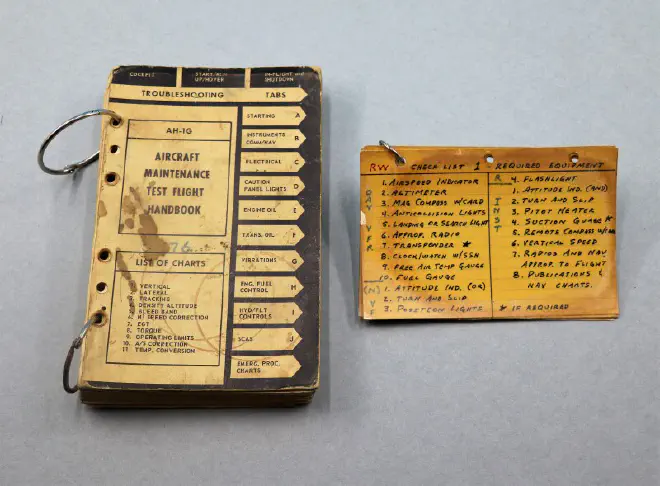 COCKPIT
START/RUN UP/HOVER
IN-FLIGHT AND SHUTDOWN
TROUBLESHOOTING
TABS
AH-1G
AIRCRAFT
MAINTENANCE
TEST FLIGHT
HANDBOOK
LIST OF CHARTS
1. VERTICAL
2. LATERAL
3. TRACKING
4. DENSITY ALTITUDE
5. BLEED BAND
6. N1 SPEED CORRECTION
7. EGT
8. TORQUE
9. OPERATING LIMITS
10. A/S CORRECTION
11. TEMP. CONVERSION
STARTING A
INSTRUMENTS
COMM/NAV B
ELECTRICAL C
CAUTION
PANEL LIGHTS D
ENGINE OIL E
TRANS. OIL F
VIBRATIONS G
ENG. FUEL
CONTROL H
HYD/FLT
CONTROLS I
SCAS J
EMERG. PROC.
CHARTS
RW CHECK LIST 1 - REQUIRED EQUIPMENT
DAY VFR
1. AIRSPEED INDICATOR
2. ALTIMETER
3. MAG COMPASS W/CARD
4. ANTICOLLISION LIGHTS
5. LANDING OR SEARCH LIGHT
6. APPROP. RADIO
7. TRANSPONDER ★
8. CLOCK/WATCH W/SSN
9. FREE AIR TEMP GAUGE
10. FUEL GAUGE
(N) VF
1. ATTITUDE IND. (OR)
2. TURN AND SLIP
3. POSITION LIGHTS
R
4. FLASHLIGHT
INST
1. ATTITUDE IND. (AND)
2. TURN AND SLIP
3. PITOT HEATER
4. SUCTION GUAGE ★
5. REMOTE COMPASS
6. VERTICAL SPEED
7. RADIOS AND NAV
APPROP. TO FLIGHT
8. PUBLICATIONS &
NAV CHARTS.
★ IF REQUIRED